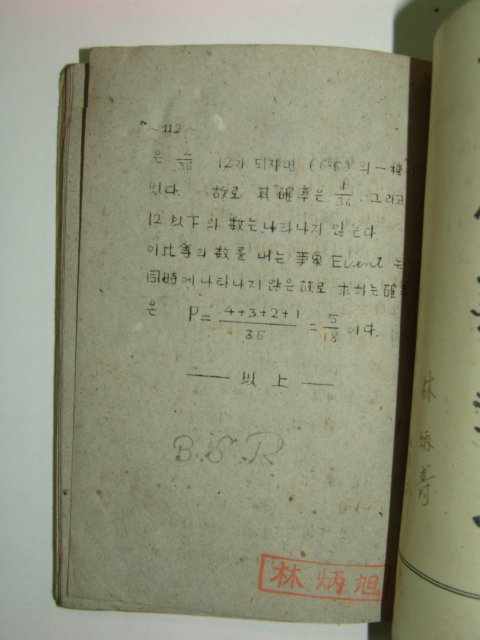 ~112~
은 2/36 12가 되자면 (6·6) 의 一種
있다. 故로 其確率은 1/36. 그리고
12 以下의 数는 나타나지 않는다
이 比等의 数를 내는 事象 Event 는
同時에 나타나지 않은 故로 求하는 確
은 P= 4+3+2+1 / 36 = 5/18 이다.
— 以上 —
B.S.R
林炳旭
林炳壽